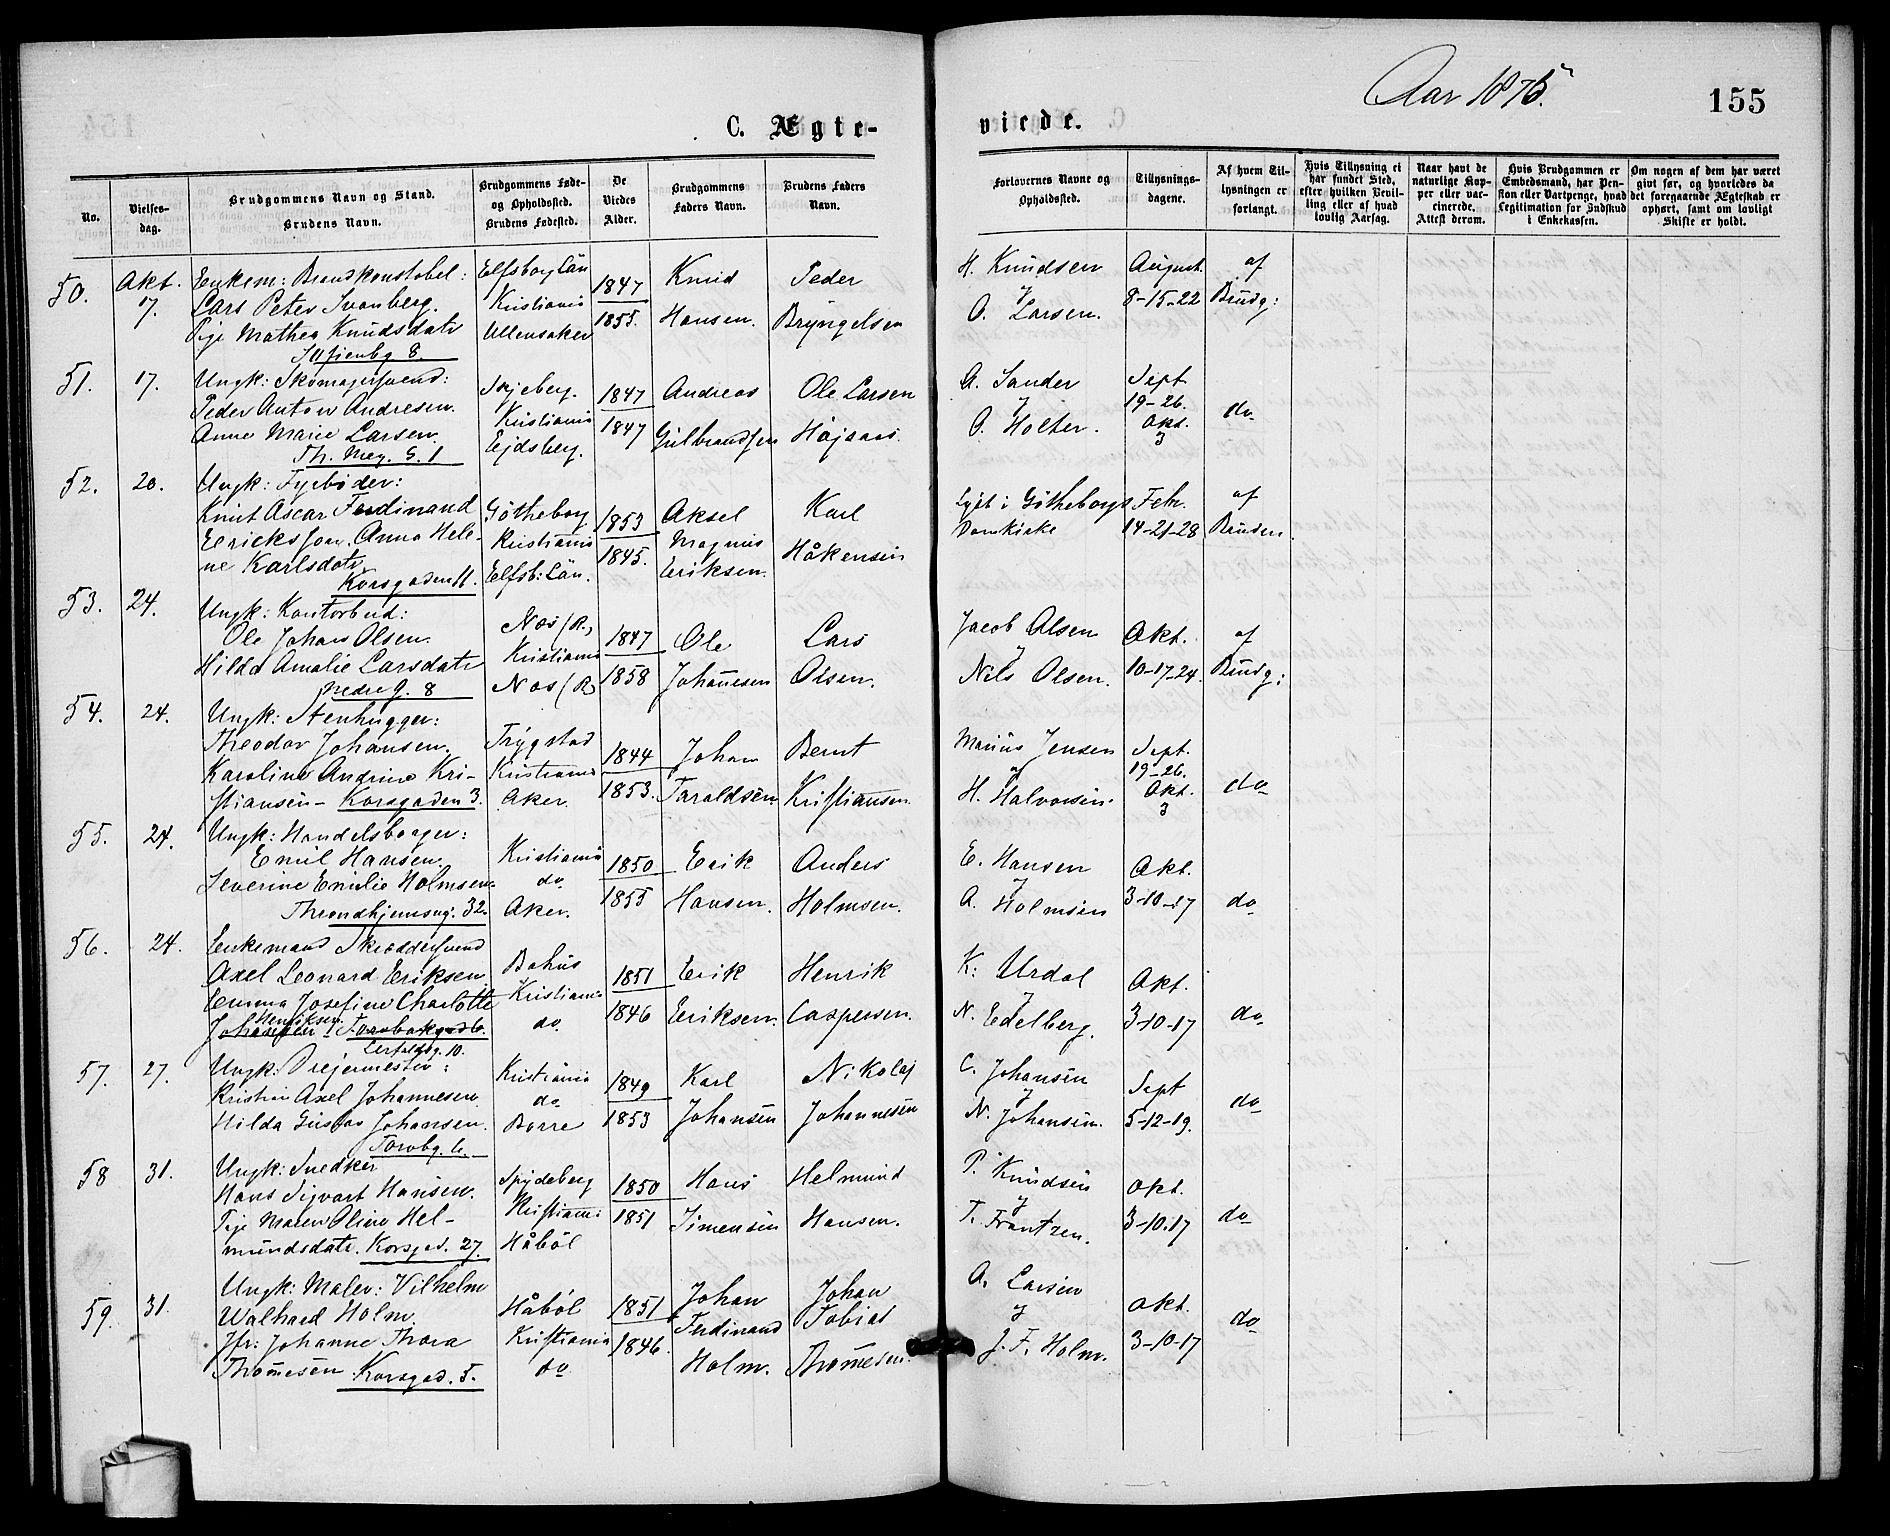 Aar 1875.
155
C. Ægte-
viede.
No.
Vielses-
dag.
Brudgommens Navn og Stand.
Brudens Navn.
Brudgommens Føde-
og Opholdssted.
Brudens Fødested.
De
Viedes
Alder.
Brudgommens
Faders Navn.
Brudens Faders
Navn.
Forlovernes Navne og
Opholdssted.
Tillysnings-
dagene.
Af hvem Til-
lysningen er
forlangt.
Hvis Tillysning ei
har fundet Sted,
efter hvilken Bevil-
ling eller af hvad
lovlig Aarsag.
Naar havt de
naturlige Kop-
per eller vac-
cinerede.
Attest derom.
Hvis Brudgommen er
Embedsmand, har Pen-
sion eller Vartpenge, hvad
Legitimation for Indskud
i Enkekassen.
Om nogen af dem har været
givt før, og hvorledes da
det foregaaende Ægteskab er
ophørt, samt om lovligt
Skifte er holdt.
50. Okt. 17.
Enkem: Brandkonstabel:
Lars Peter Svanberg.
Pige Mathea Knudsdatr
Sofienbg 8.
Elfsborg Län
Kristiania
Ullensaker
1847
1855.
Knud
Hansen.
Peder
Bryngelsen
H. Knudsen
O. Larsen.
August.
8-15-22
af
Brudg:
51. 17.
Ungk: Skomagersvend:
Peder Anton Andresen.
Anne Marie Larsen.
Th. Mey. G. 1
Skjeberg.
Kristiania
Eidsberg.
1847
1847
Andreas
Gulbrandsen
Ole Larsen
Højaas.
A. Sander
O. Holter.
Sept
19-26.
Okt.
3
do
52. 20.
Ungk: Fyrbøder:
Knut Oscar Ferdinand
Ericksson. Anna Hele-
ne Karlsdatr
Korsgaden 11.
Götheborg
Kristiania
Elfsb: Län.
1853
1845.
Aksel
Magnus
Eriksen.
Karl
Håkensen
Lyst i Götheborgs
Domkirke
Febr.
14-21-28
af
Bruden.
53. 24.
Ungk: Kontorbud:
Ole Johan Olsen.
Hilda Amalie Larsdatr
Nedre G. 8
Næs (R.)
Kristiania
Næs (R)
1847
1858
Ole
Johannesen
Lars
Olsen.
Jacob Olsen
Nils Olsen.
Okt.
10-17-24.
af
Brudg:
54. 24.
Ungk: Stenhugger:
Theodor Johansen.
Karoline Andrine Kri-
stiansen- Korsgaden 3.
Trygstad
Kristiania
Aker.
1844
1853.
Johan
Taraldsen
Bernt
Kristiansen.
Marius Jensen
H. Halvorsen.
Sept.
19-26.
Okt.
3
do
55. 24.
Ungk: Handelsborger:
Emil Hansen.
Severine Emilie Holmsen.
Throndhjemsvg. 32.
Kristiania
do
Aker.
1850
1855
Erik
Hansen.
Anders
Holmsen.
E. Hansen
A. Holmsen
Okt.
3-10-17
do
56. 24.
Enkemand Skræddersvend
Axel Leonard Eriksen
Emma Josefine Charlotte
Henriksen.
Lerfaldsg. 10.
Bahus
Kristiania
do.
1851
1846
Erik
Eriksen.
Henrik
Caspersen.
K. Urdal
N. Edelberg.
Okt.
3-10-17
do
57. 27.
Ungk: Drejermester:
Kristian Axel Johannesen
Hilda Gustava Johansen.
Torvbg. 6.
Kristiania
do
Borre
1849
1853
Karl
Johansen
Nikolaj
Johannesen
C. Johansen
N. Johansen.
Sept
5-12-19.
do
58 31.
Ungk: Snedker
Hans Sigvart Hansen.
Pige Maren Oline Hel-
mundsdatr. Korsgad. 27.
Spydeberg
Kristiania:
Håböl
1850
1851
Hans
Simensen
Helmund
Hansen.
P. Knudsen
T. Frantzen.
Okt.
3-10.17
do
59. 31.
Ungk: Maler: Vilhelm
Walhard Holm.
Jfr: Johanne Thora
Thomesen Korsgad. 5.
Håböl
Kristiania
do
1851
1846.
Johan
Ferdinand
Holm.
Johan
Tobias
Thomesen.
A. Larsen
J. F. Holm.
Okt.
3-10-17
do